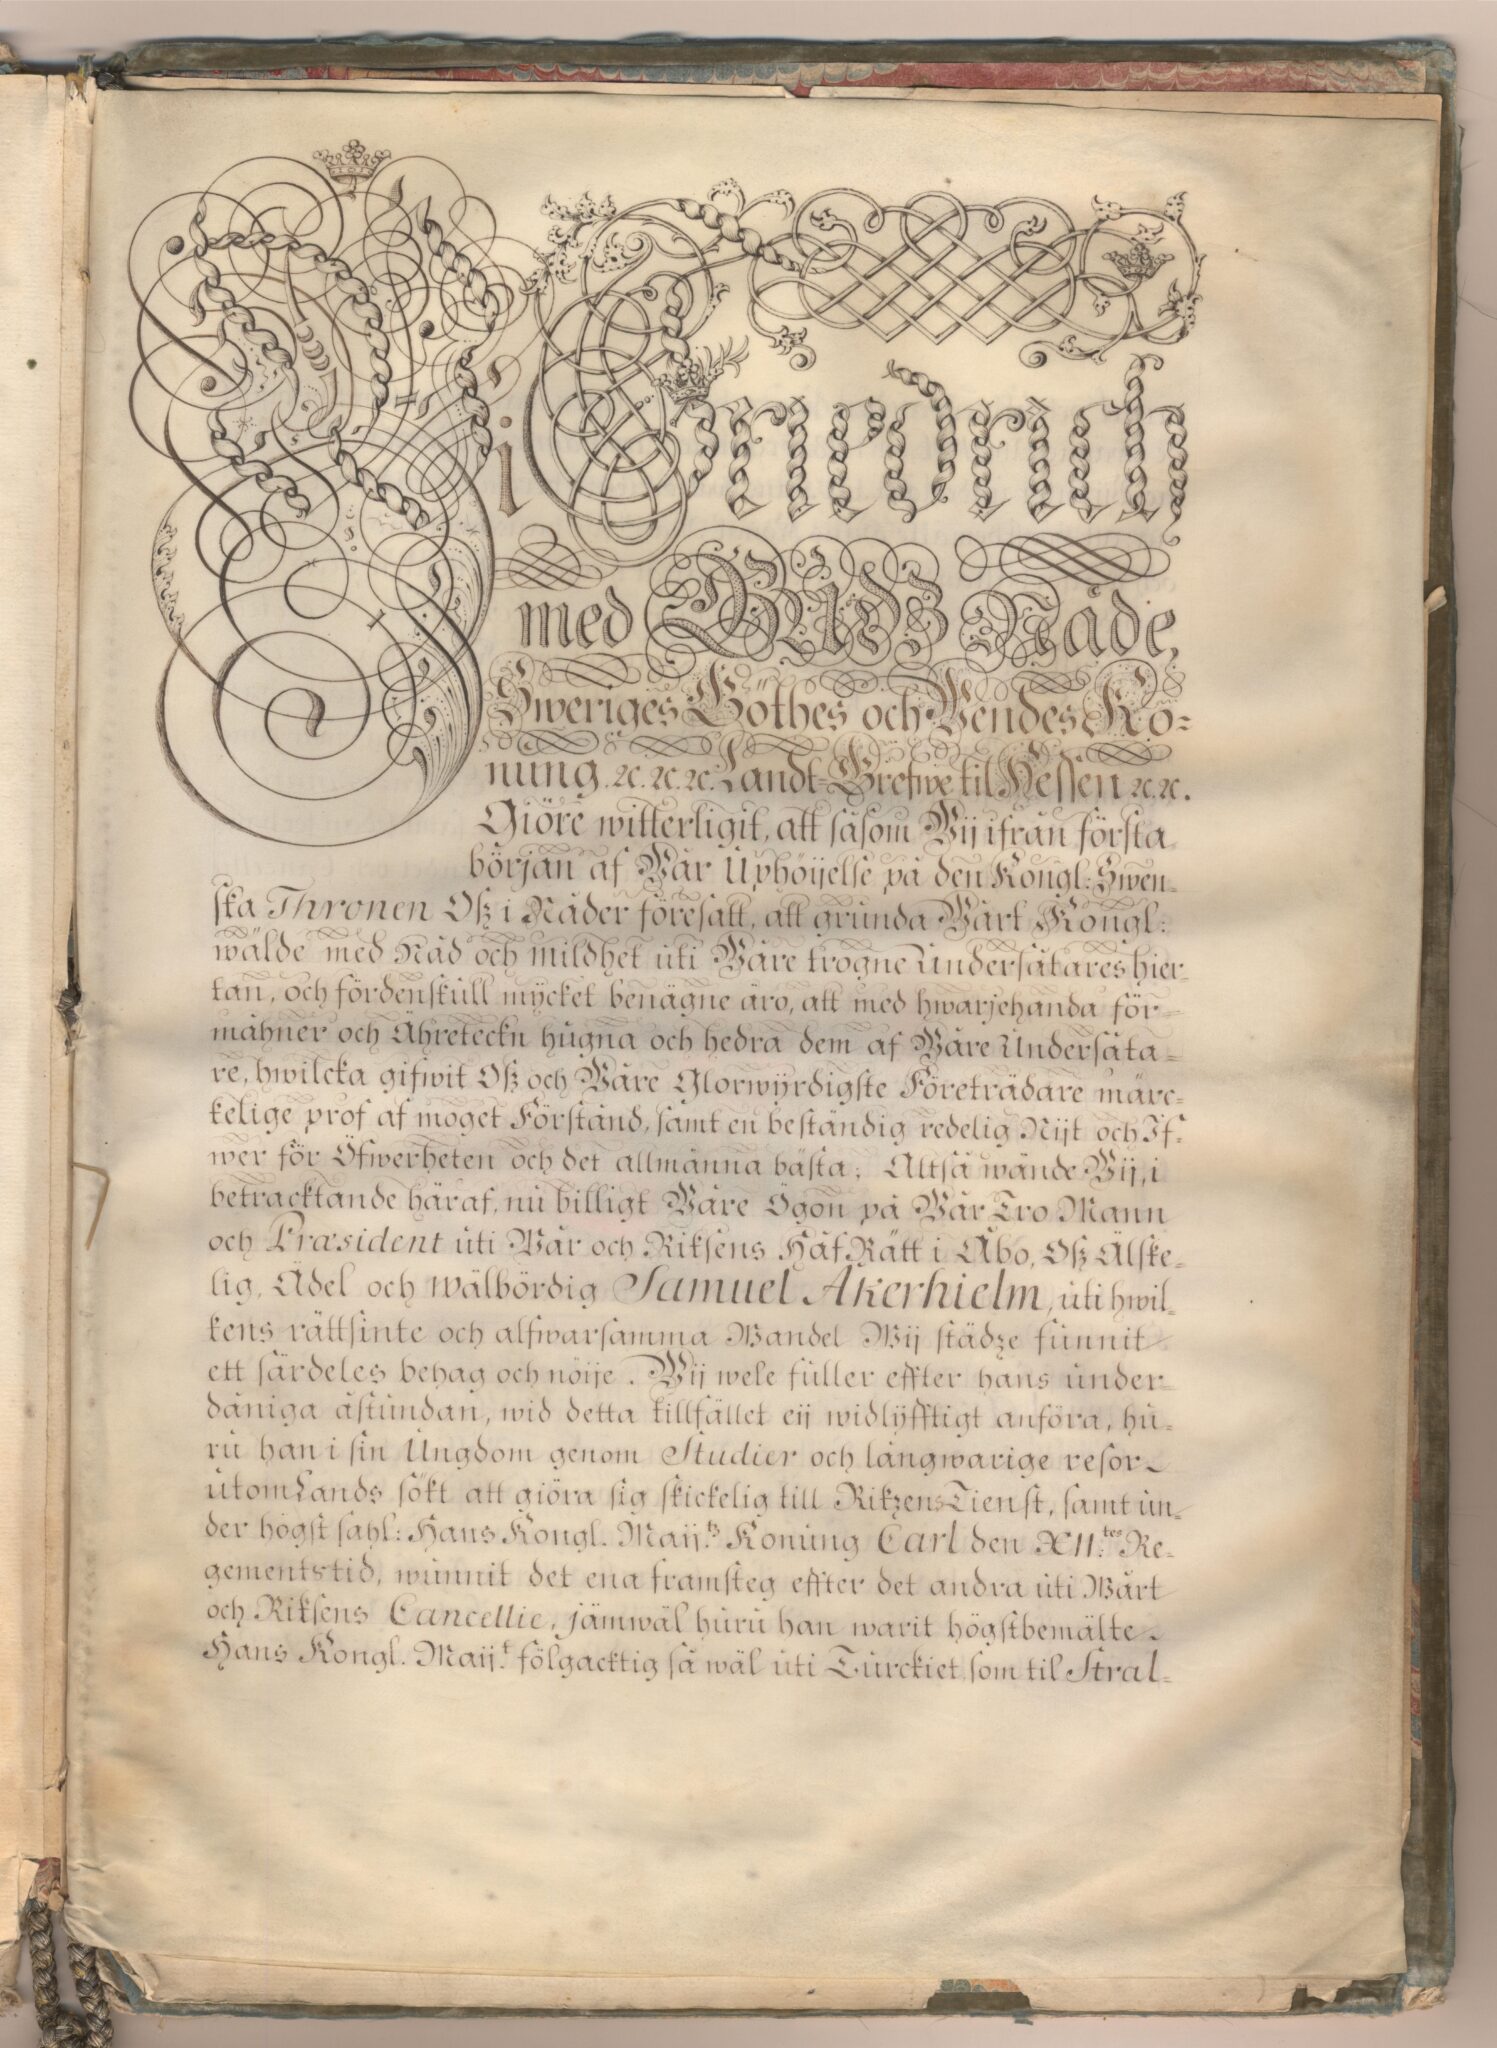 Wi Friedrich
med Gudz Nåde,
Sweriges Göthes och Wendes Ko-
nung. ꝛc. ꝛc. ꝛc. Landt-Grefwe til Hessen ꝛc. ꝛc.
Giöre witterligit, att såsom Wij ifrån första
början af Wår Uphöijelse på den Kongl: Swen-
ska Thronen Oß i Nåder föresatt, att grunda Wårt Kongl:
wälde med Nåd och mildhet uti Wåre trogne Undersåtares hier-
tan, och fördenskull mycket benägne äro, att med hwarjehanda för-
måhner och Ähreteckn hugna och hedra dem af Wåre Undersåta-
re, hwilcka gifwit Oß och Wåre Glorwyrdigste Företrädare märc-
kelige prof af moget Förstånd, samt en beständig redelig Nijt och If-
wer för Öfwerheten och det allmänna bästa; Altså wände Wij, i
betracktande häraf, nu billigt Wåre Ögon på Wår Tro Mann
och Præsident uti Wår och Riksens HåfRätt i Åbo, Oß Älske-
lig, Ädel och wälbördig Samuel Åkerhielm, uti hwil-
kens rättsinte och alfwarsamma Wandel Wij städze funnit
ett särdeles behag och nöije. Wij wele fuller effter hans under-
dåniga åstundan, wid detta tillfället eij widlyfftigt anföra, hu-
ru han i sin Ungdom genom Studier och långwarige resor
utom Lands sökt att giöra sig skickelig till Rikzens Tienst, samt un-
der högst sahl: Hans Kongl. Maij:tz Konung Carl den XII:tes Re-
gementstid, wunnit det ena framsteg effter det andra uti Wårt
och Riksens Cancellie, jämwäl huru han warit högstbemälte
Hans Kongl. Maij:t fölgacktig så wäl uti Turckiet som til Stral-